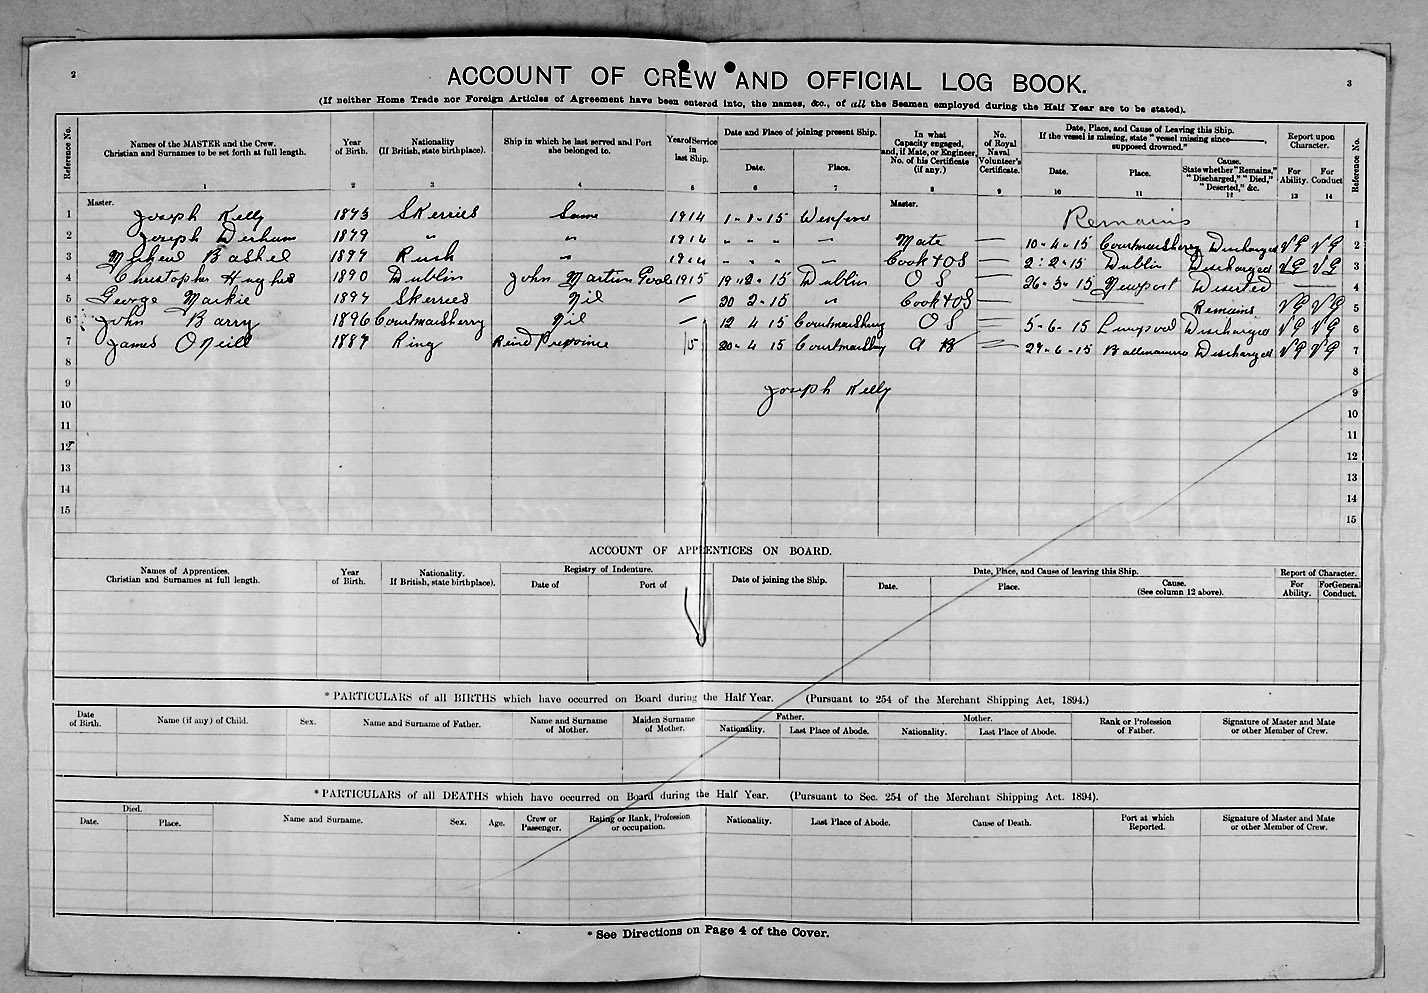 2
3
ACCOUNT OF CREW AND OFFICIAL LOG BOOK.
(If neither Home Trade nor Foreign Articles of Agreement have been entered into, the names, &c., of all the Seamen employed during the Half Year are to be stated).
Reference No. | Names of the MASTER and the Crew. Christian and Surnames to be set forth at full length. | Year of Birth. | Nationality (If British, state birthplace). | Ship in which he last served and Port she belonged to. | Year of Service in last Ship. | Date and Place of joining present Ship. Date. Place. | In what Capacity engaged, and, if Mate, or Engineer, No. of his Certificate (if any.) | No. of Royal Naval Volunteer's Certificate. | Date, Place, and Cause of Leaving this Ship. If the vessel is missing, state "vessel missing since———, supposed drowned." Date. Place. Cause. State whether "Remains," "Discharged," "Died," "Deserted," &c. | Report upon Character. For Ability. For Conduct | Reference No.
1 2 3 4 5 6 7 8 9 10 11 12 13 14
Master. Master.
1 Joseph Kelly 1873 Skerries Same 1914 1-1-15 Wexford Remains 1
2 Joseph Derham 1879 " " 1914 " " " " Mate — 10-4-15 Courtmacsherry Discharged VG VG 2
3 Bashel 1897 Rush " 1914 " " " " Cook & OS — 2-2-15 Dublin Discharged VG VG 3
4 Christopher Hughes 1890 Dublin John 1915 19-2-15 Dublin OS — 26-3-15 Newport Deserted — 4
5 George Mackie 1897 Skerries Nil — 20 2-15 " Cook & OS — — Remains VG VG 5
6 John Barry 1896 Courtmacsherry Nil — 12 4 15 Courtmacsherry OS — 5-6-15 Liverpool Discharged VG VG 6
7 James ONeill 1887 Ring 15 20-4 15 Courtmacsherry AB — 29-6-15 Discharged VG VG 7
8 8
9 Joseph Kelly 9
10 10
11 11
12 12
13 13
14 14
15 15
ACCOUNT OF APPRENTICES ON BOARD.
Names of Apprentices. Christian and Surnames at full length. | Year of Birth. | Nationality. If British, state birthplace). | Registry of Indenture. Date of Port of | Date of joining the Ship. | Date, Place, and Cause of leaving this Ship. Date. Place. Cause. (See column 12 above). | Report of Character. For Ability. For General Conduct.
* PARTICULARS of all BIRTHS which have occurred on Board during the Half Year. (Pursuant to 254 of the Merchant Shipping Act, 1894.)
Date of Birth. | Name (if any) of Child. | Sex. | Name and Surname of Father. | Name and Surname of Mother. | Maiden Surname of Mother. | Father. Nationality. Last Place of Abode. | Mother. Nationality. Last Place of Abode. | Rank or Profession of Father. | Signature of Master and Mate or other Member of Crew.
* PARTICULARS of all DEATHS which have occurred on Board during the Half Year. (Pursuant to Sec. 254 of the Merchant Shipping Act. 1894).
Died. Date. Place. | Name and Surname. | Sex. | Age. | Crew or Passenger. | Rating or Rank, Profession or occupation. | Nationality. | Last Place of Abode. | Cause of Death. | Port at which Reported. | Signature of Master and Mate or other Member of Crew.
* See Directions on Page 4 of the Cover.